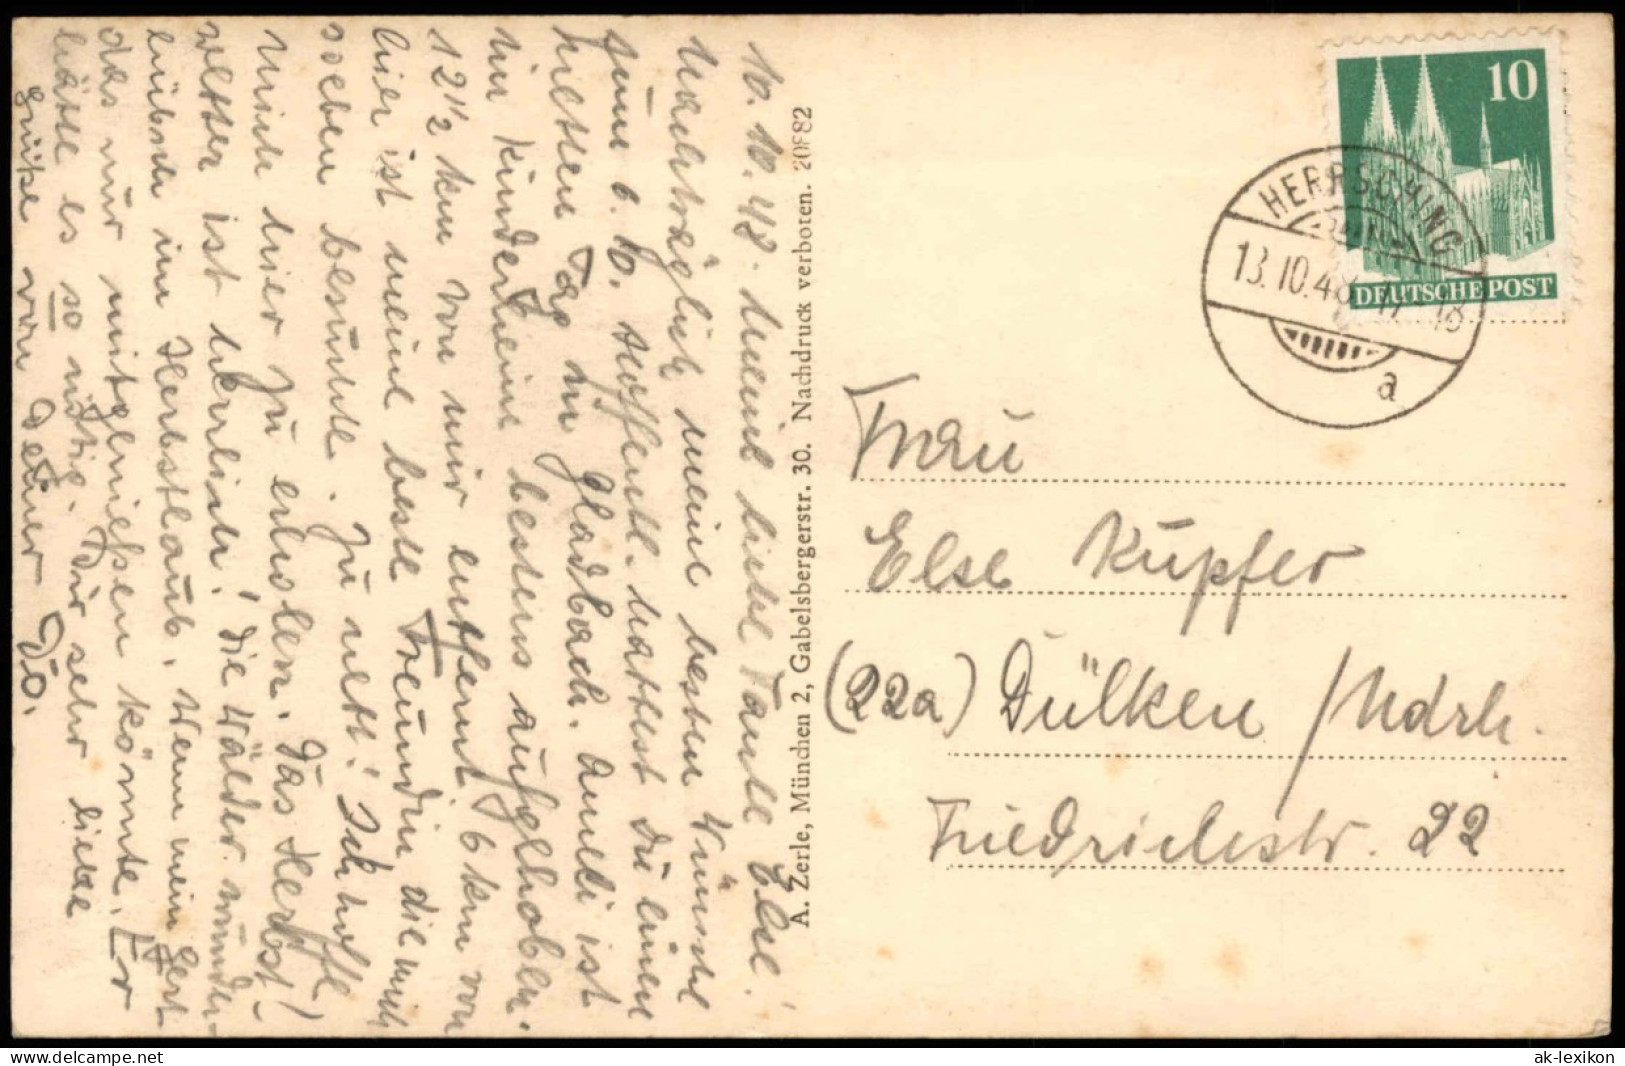 10.10.48. Meine liebe Tante Else!
Nachträglich meine besten Wünsche
zum 6.10. Hoffentl. hattest Du einen
netten Tag in Gladbach. Anneli ist
im Kinderheim bestens aufgehoben.
12 1/2 km von mir entfernt. 6 km von
hier ist meine beste Freundin die mich
soeben besuchte. Zu nett! Ich hoffe
mich hier zu erholen. Das Herbst-
wetter ist herrlich! Die Wälder wunder-
hübsch im Herbstlaub. Wenn mein Gert
das nur mitgenießen könnte. Er
hätte es so nötig. Dir sehr liebe
Grüße von Deiner Do.
A. Zerle, München 2, Gabelsbergerstr. 30. Nachdruck verboten. 20882
10
DEUTSCHE POST
HERRSCHING
13.10.48 17-18
a
Frau
Else Küpfer
(22a) Dülken / Ndrh.
Friedrichstr. 22
delcampe.net
ak-lexikon